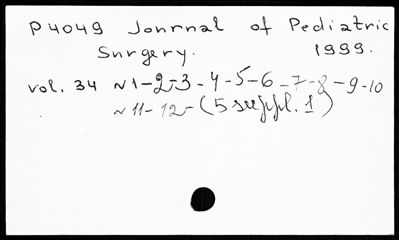 P4049 Jonrnal of Pediatric
Surgery. 1999.
vol. 34 N1-2-3-4-5-6-7-8-9-10
N11-12-(5 suppl. 1)